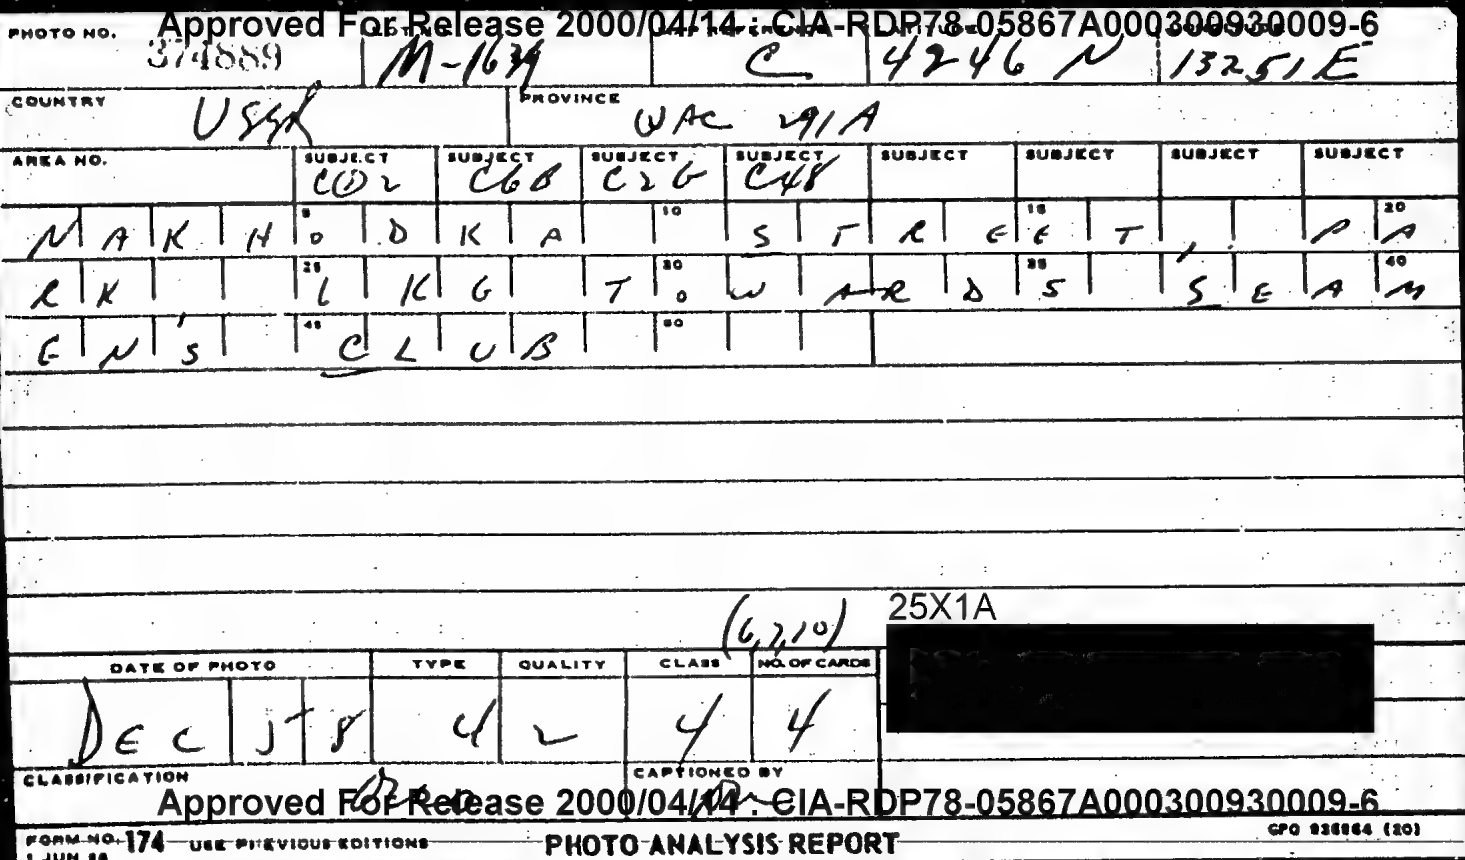 Approved For Release 2000/04/14 : CIA-RDP78-05867A000300930009-6
PHOTO NO. 374889 M-1639 C 4246 N 13251 E
COUNTRY USSR PROVINCE WAC 291A
AREA NO. SUBJECT SUBJECT SUBJECT SUBJECT SUBJECT SUBJECT SUBJECT SUBJECT
C02 C6B C2G C48
5 10 15 20
NAKHODKA STREET, PA
25 30 35 40
RK LKG TOWARDS SEAM
45 50
EN'S CLUB
(6,7,10) 25X1A
DATE OF PHOTO TYPE QUALITY CLASS NO. OF CARDS
DEC 58 4 2 4 4
CLASSIFICATION CAPTIONED BY
Approved For Release 2000/04/14 : CIA-RDP78-05867A000300930009-6
FORM NO. 174 USE PREVIOUS EDITIONS PHOTO ANALYSIS REPORT GPO 936964 (20)
1 JUN